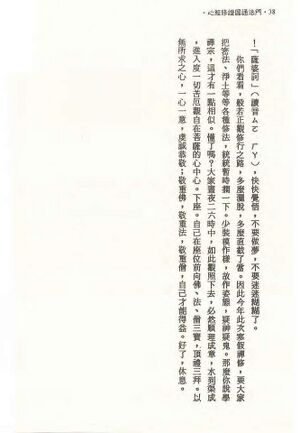 心經修證圓通法門・38
！「薩婆訶」（讀音ㄙㄛ ㄏㄚ），快快覺悟，不要做夢，不要迷迷糊糊了。
你們看看，般若正觀修行之路，多麼灑脫，多麼直截了當。因此今年此次寒假禪修，要大家
把密法、淨土等等各種修法，統統暫時擱一下。少裝模作樣，故作姿態，裝神裝鬼。那麼你說學
禪宗，這才有一點相似。懂了嗎？大家晝夜二六時中，如此觀照下去，必然順理成章，水到渠成
，進入度一切苦厄觀自在菩薩的心中心。下座。自己在座位前向佛、法、僧三寶，頂禮三拜。以
無所求之心，一心一意，虔誠恭敬；敬重佛，敬重法，敬重僧，自己才能得益。好了，休息。